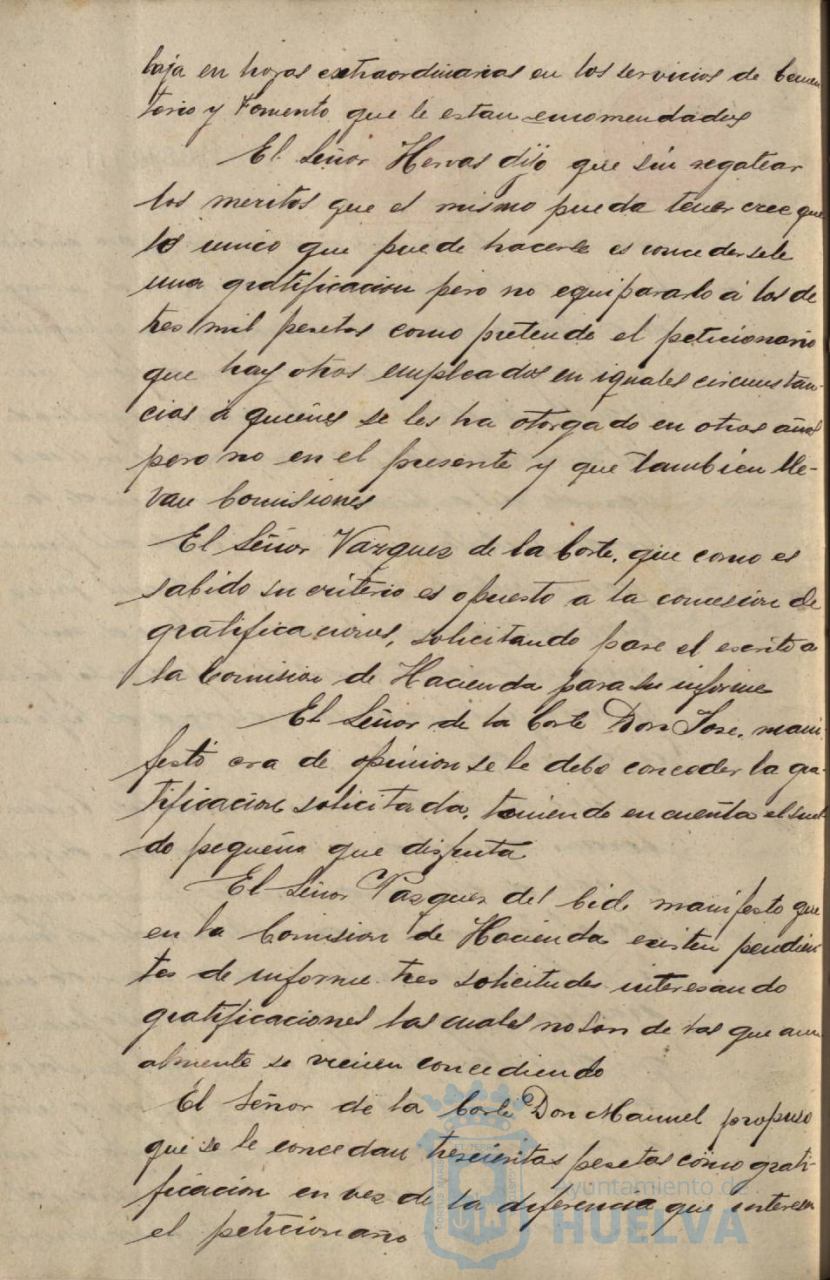 baja en horas extraordinarias en los servicios de Cemen
terio y Fomento que le estan encomendados
El Señor Hervas dijo que sin regatear
los meritos que el mismo pueda tener cree que
lo unico que puede hacerse es concedersele
una gratificacion pero no equipararlo á los de
tres mil pesetas como pretende el peticionario
que hay otros empleados en iguales circunstan-
cias á quienes se les ha otorgado en otros años
pero no en el presente y que tambien lle-
van Comisiones
El Señor Vazquez de la Corte, que como es
sabido su criterio es opuesto a la concesion de
gratificaciones, solicitando pase el escrito a
la Comision de Hacienda para su informe
El Señor de la Corte Don Jose, mani-
festó era de opinion se le debe conceder la gra-
tificacion solicitada, teniendo en cuenta el suel
do pequeño que disfruta
El Señor Vazquez del Cid, manifesto que
en la Comision de Hacienda existen pendien
tes de informe tres solicitudes interesando
gratificaciones las cuales no son de las que anu
almente se vienen concediendo
El Señor de la Corte Don Manuel propuso
que se le concedan trescientas pesetas como grati-
ficacion en vez de la diferencia que interesa
el peticionario
Ayuntamiento de
HUELVA